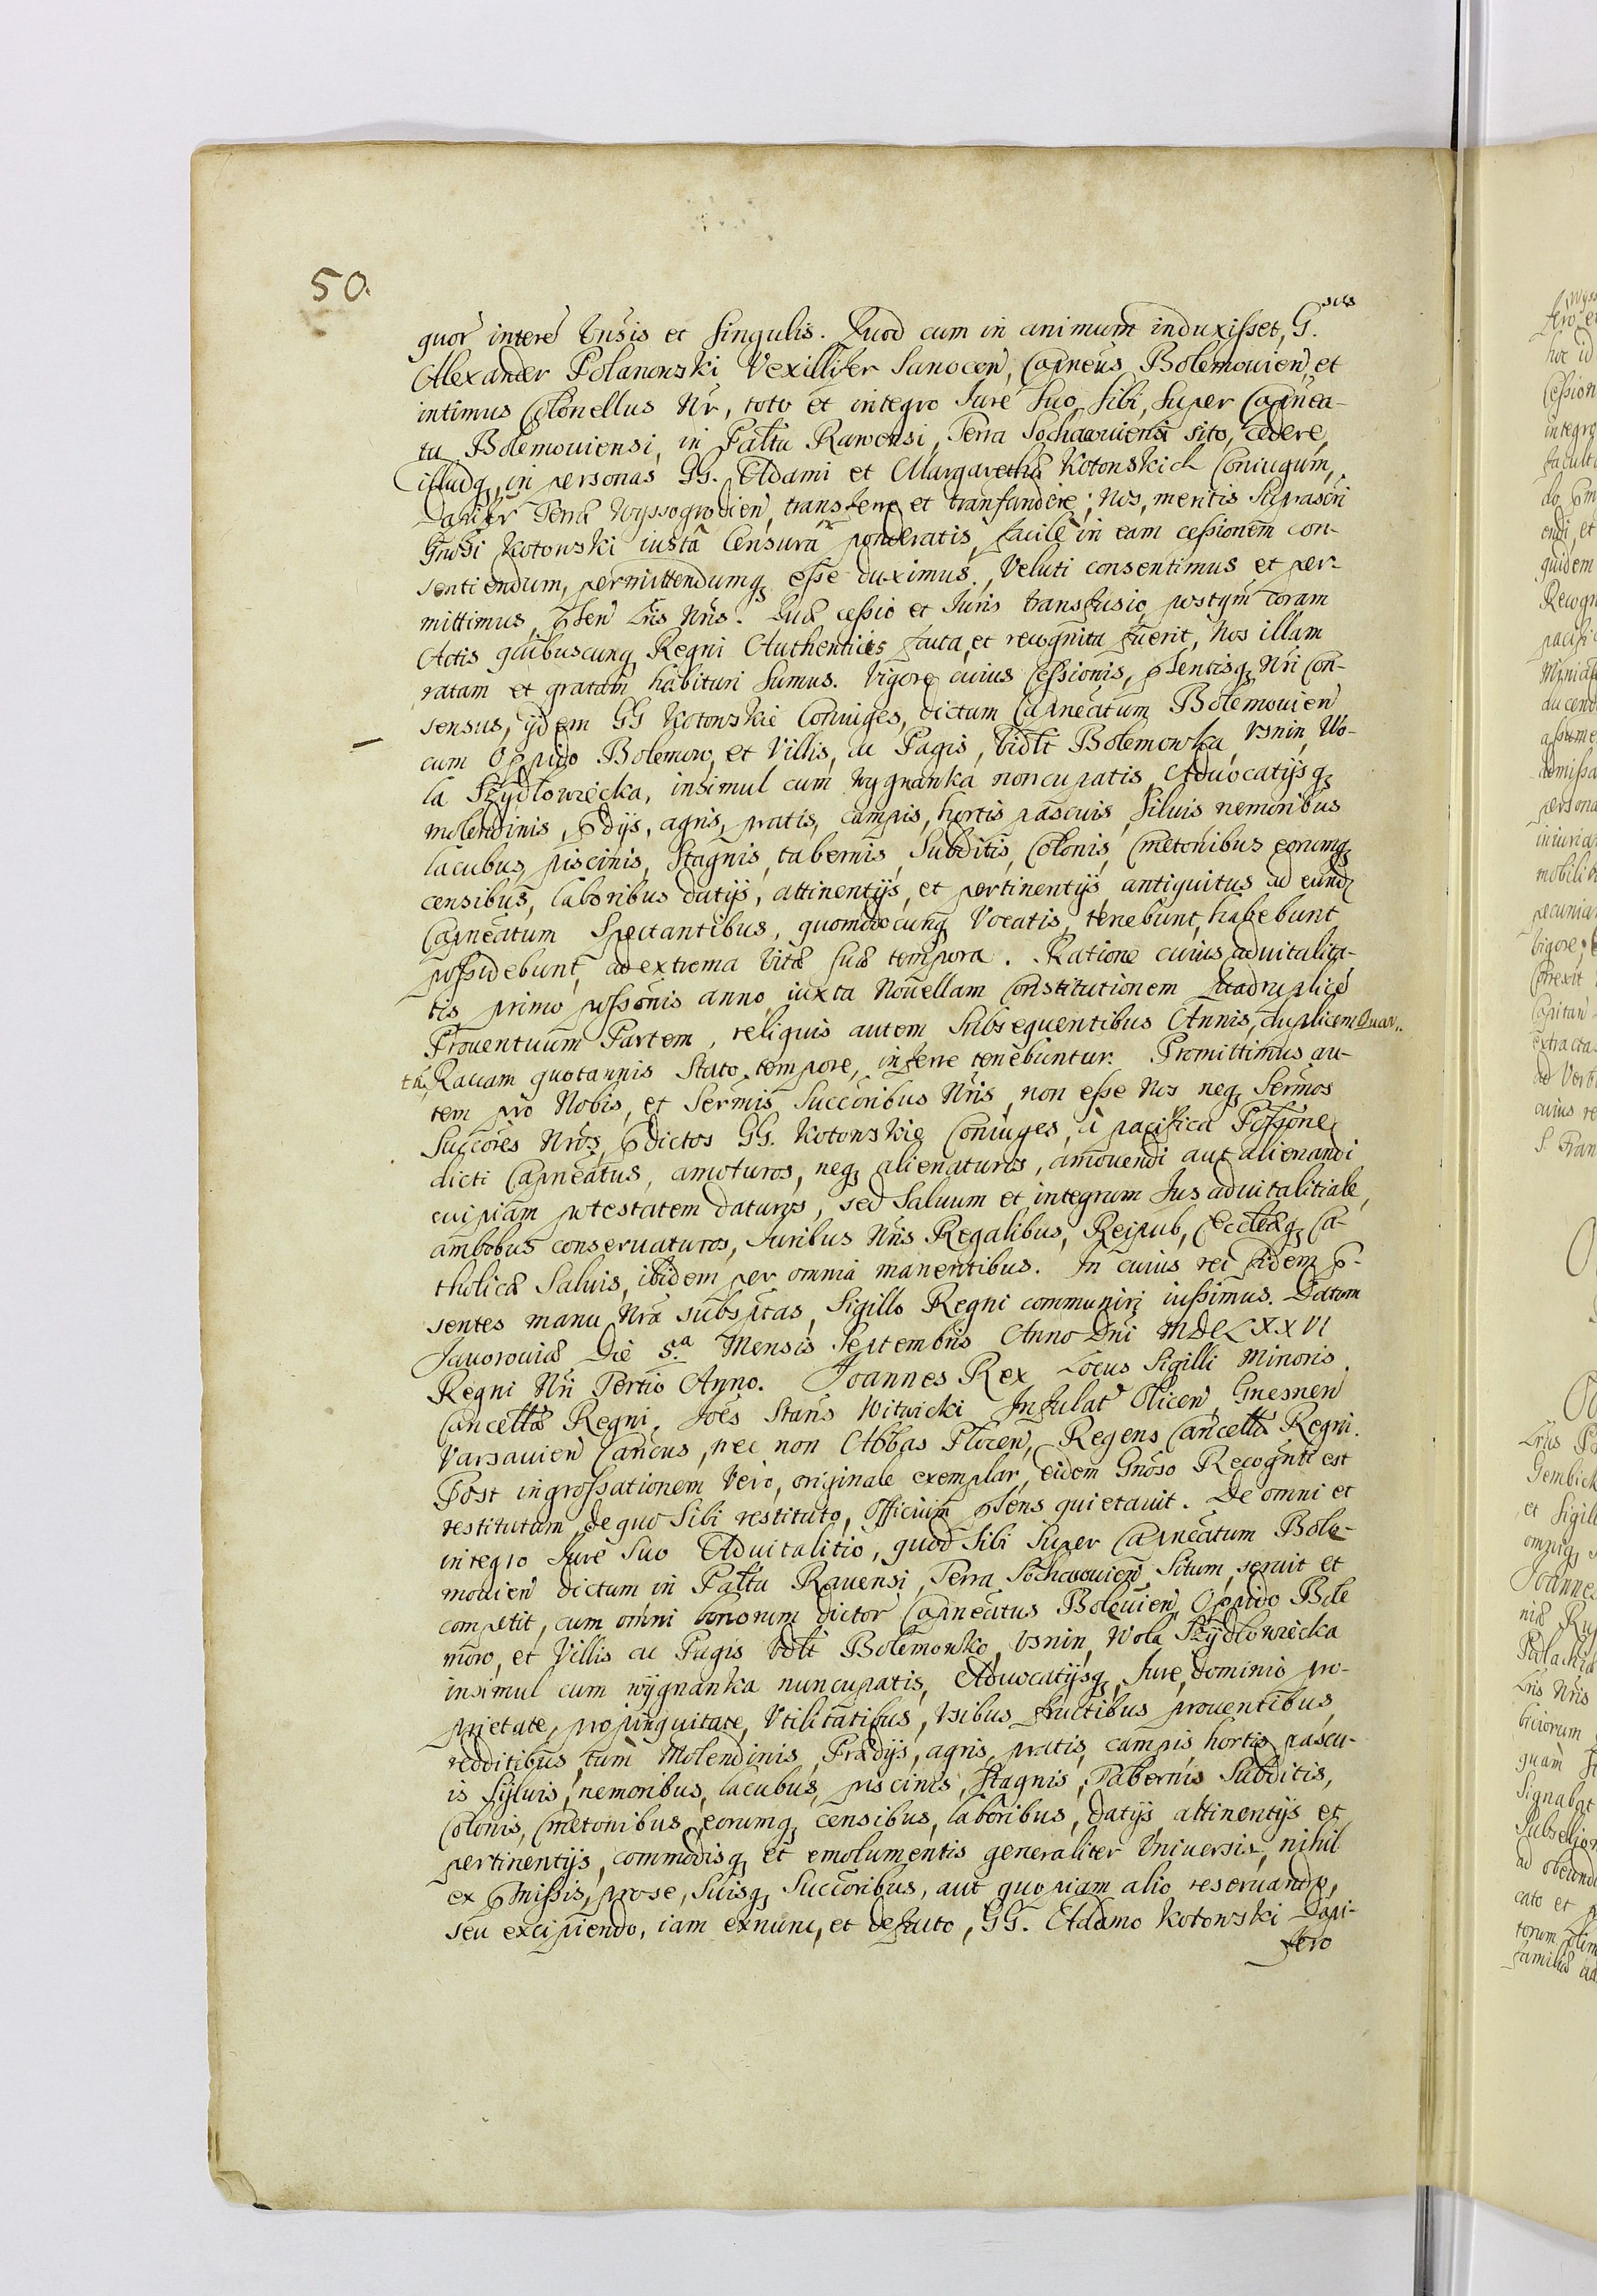 50.
quor intere Unsis et singulis. Quod cum in animum induxisset, G.sus
Alexander Polanowski Vexillifer Sanocen, Capneus Bolemouien, et
intimus Colonellus Nr, toto et integro Jure Suo, Sibi, Super Capnea-
tu Bolemouiensi, in Pałtu Rawensi, Terra Sochaouiensi sito, cedere,
illudq, in personas GG. Adami et Margarethæ Kotowskich Coniugum,
Dapifr Terræ Wyssogrodien, transferre et transfundere; Nos, meritis Suprascri
Gnosi Kotowski iustâ Censurâ ponderatis, facile in eam cessionem con-
sentiendum, permittendumq esse duximus, Veluti consentimus et per-
mittimus, pñten Lris Nris. Quæ cessio et Juris transfusio, postqm coram
Actis quibuscunq Regni Authenticis facta, et recognita fuerit, Nos illam
ratam et gratam habituri Sumus. Vigore cuius Cessionis, pñtensisq Nri Con-
sensus, ijdem GG Kotowskie Coniuges, dictum Capneatum Bolemouien
cum Oppido Bolemow, et Villis, ac Pagis, vidlt Bolemowka, Vsnin, Wo-
la Szydłowiecka, insimul cum wygnanka noncupatis, Aduocatijsq
molendinis, prædijs, agris, pratis, campis, hortis pascuis, Siluis nemoribus
lacubus, piscinis, Stagnis, tabernis, Subditis, Colonis, Cmetonibus eorumq
censibus, laboribus datijs, attinentijs, et pertinentijs, antiquitus ad eund
Capneatum Spectantibus, quomodocunq Vocatis, tenebunt, habebunt
possidebunt, ad extrema Vitæ Suæ tempora. Ratione cuius aduitalita-
tis primo possonis anno, iuxta Nouellam Constitutionem Quadruplice
Prouentuum Partem, reliquis autem Subsequentibus Annis, duplicem Quar-
tā, Rauam quotannis Stato tempore, inferre tenebuntur. Promittimus au-
tem pro Nobis, et Sermis Succoribus Nris, non esse Nos neq Sermos
Succores Nros, pdictos GG. Kotowskie Coniuges, à pacifica Possone
dicti Capneatus, amoturos, neq alienaturos, amouendi aut alienandi
cuipiam potestatem daturos, sed Saluum et integrum Jus aduitalitiale,
ambobus conseruaturos, Juribus Nris Regalibus, Reipub, Ecclæq Ca-
tholicæ Saluis, ibidem per omnia manentibus. In cuius rei fidem p-
sentes manu Nra subsptas, Sigillo Regni communiri iussimus. Datum
Jauorouiæ Die 8.a Mensis Septembris Anno Dni MDCLXXVI
Regni Nri Tertio Anno. Joannes Rex Locus Sigilli Minoris
Cancellæ Regni, Joes Stans Witwicki Infulat Olicen, Gnesnen
Varsauien Cancus, nec non Abbas Plocen, Regens Cancellæ Regni.
Post ingrossationem Vero, originale exemplar, eidem Gnoso Recognti est
restitutum, de quo Sibi restituto, Officium pñtens quietauit. De omni et
integro Jure Suo Aduitalitio, quod Sibi Super Capneatum Bole-
mouien dictum in Pałtu Rauensi, Terra Sochaouien, Situm, seruit et
competit, cum omni bonorum dictor Capneatus Boleuien, Oppido Bole
mow, et Villis ac Pagis vdlt Bolemowko, Vsnin, Wola Szydłowiecka
insimul cum wygnanka nuncupatis, Aduocatijsq, Jure, dominio pro-
prietate, propinquitate, Vtilitatibus, Vsibus fructibus prouentibus,
redditibus, tum Molendinis, Prædijs, agris, pratis, campis hortis pascu-
is Syluis, nemoribus, lacubus, piscinis, Stagnis, Tabernis Subditis,
Colonis, Cmetonibus, eorumq censibus, laboribus, datijs, attinentijs et
pertinentijs, commodisq et emolumentis generaliter Vniuersis, nihil
ex pmissis, pro se, Suisq Succoribus, aut quopiam alio reseruando,
seu excipiendo, iam exnunc, et defacto, GG. Adamo Kotowski Dapi-
fero